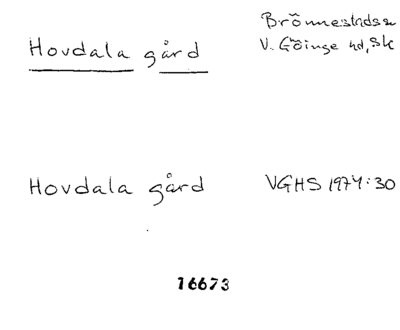 Brönnestads sn
V. Göinge hd, Sk
Hovdala gård
Hovdala gård VGHS 1974:30
16673